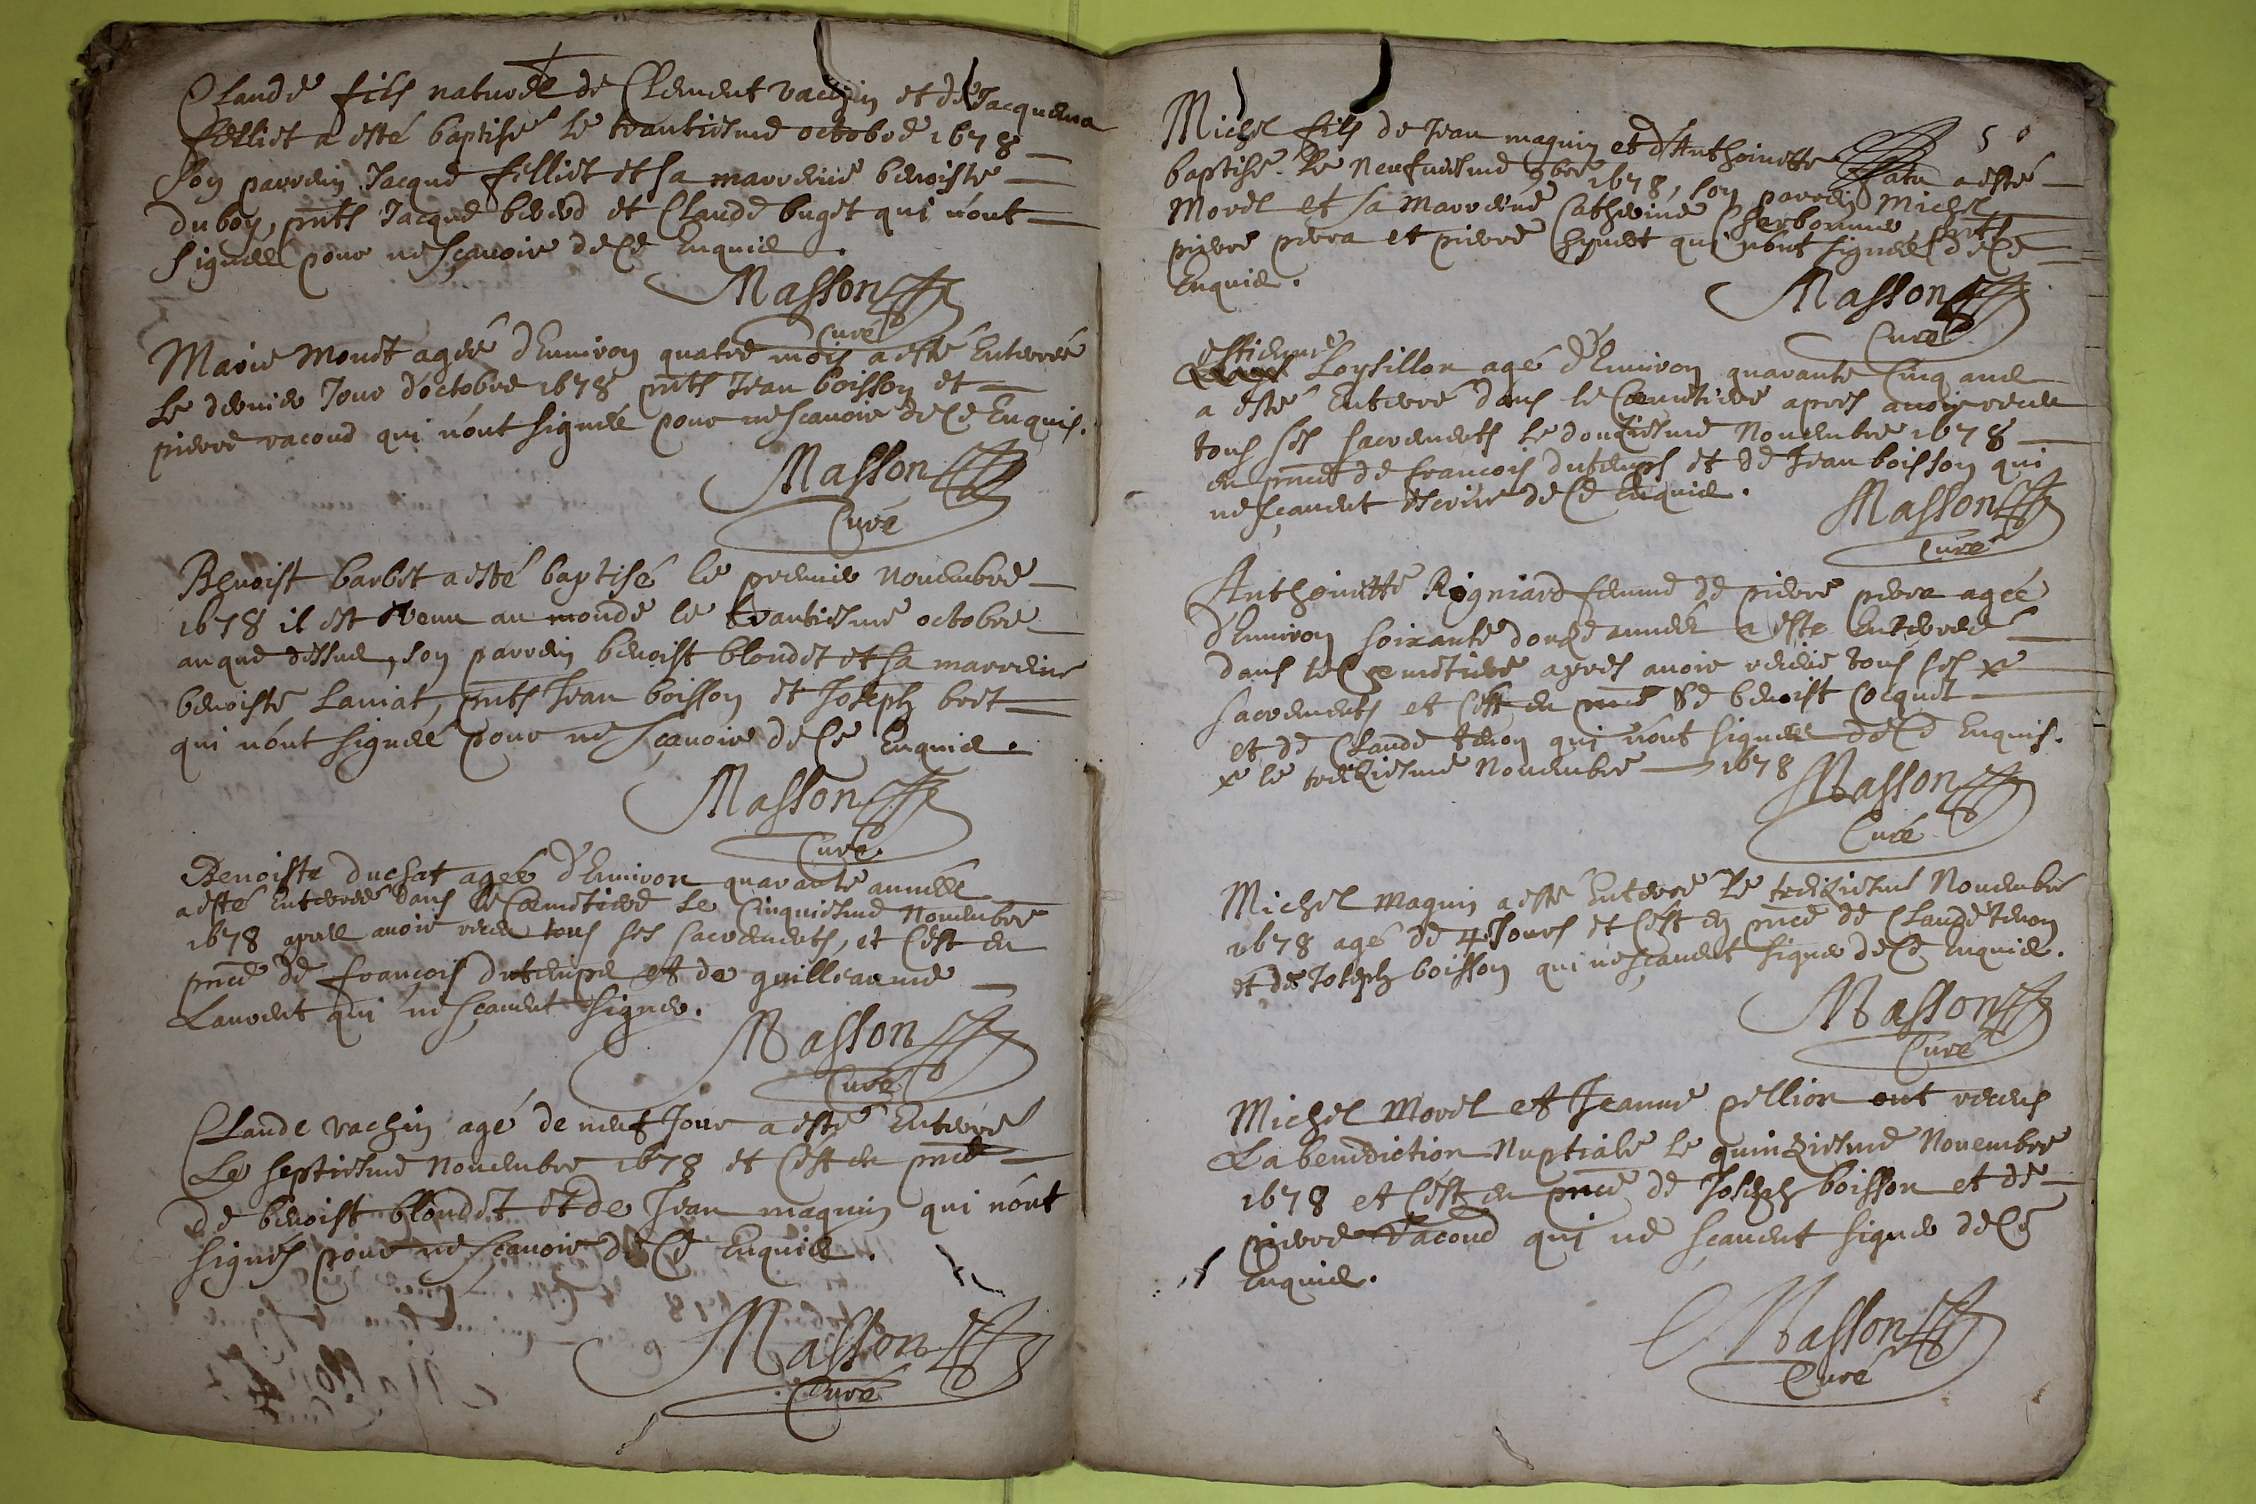 Claude fils naturel de Clement vachin et de Jacquema
felliet a esté baptisé le trantiesme octobre 1678
son parrein Jacque felliet et sa marreine benoiste
duboy, pnts Jacque et Claude buget qui n'ont
signéé pour ne sçavoir de ce Enquie.
Masson
Curé
Marie Monet agéé d'Enuiron quatre mois a esté Enterréé
Le dernier Jour d'octobre 1678 pnts Jean boisson et
pierre racoud qui n'ont signéé pour ne scauoir de ce Enquis.
Masson
Curé
Benoist barbet a esté baptisé le premie Nouembre
1678 il est Venu au monde le trantiesme octobre
auque dessue, son parrein benoist blondet et sa marreine
benoiste Laniat, pnts Jean boisson et Joseph bret
qui n'ont signéé pour ne sçauoir de ce Enquie.
Masson
Curé.
Benoiste duchat agéé d'Enuiron quarante annéé
a esté Enterréé dans le Cœmetiere Le Cinquiesme Nouembre
1678 apree auoir receu tous ses sacrements, et c'est en
pnce de françois dutemps et de guilleaume
Laurent qui ne sçauent signer.
Masson
Curé
Claude vachin agé de neuf Jour a esté Enterré
Le septiesme Nouembre 1678 et c'est en pnce
de benoist blondet et de Jean maquin qui n'ont
signés pour ne sçauoir de ce Enquie.
Masson
Curé
50
Michel fils de Jean maquin et d'Anthoinette a esté
baptisé. Le Neufuiesme 9bre 1678, son parrein Michel
Morel et sa Marreine Catherine Cherbonnie pnts
pierre perra et pierre qui n'ont signéé de ce
Enquie.
Masson
Curé
estienne
Loysillon agé d'Enuiron quarante Cinq ane
a esté Enterré dans le Cœmetiere apres auoir receu
tous ses sacrements le douziesme Nouembre 1678
en pnce de francois dutemps et de Jean boisson qui
ne sçauent Escrire de ce Enquie.
Masson
Curé
Anthoinette Rogniard femme de pierre perra agéé
d'Enuiron soixante douze annéé a este Enterréé
dans le Cœmetiere apres auoir receue tous ses x
sacrements et c'est en pnce de benoist Cocquet
et de Claude tenon qui n'ont signéé de ce Enquis.
x le treiziesme Nouembre 1678
Masson
Curé
Michel Maquin a esté Enterré Le treiziesme Nouembre
1678 agé de 4 Jours et c'est en pnce de Claude tenon
et de Joseph boisson qui ne sçauent signer de ce enquie.
Masson
Curé
Michel Morel et Jeanne pellion ont receus
La benediction Nuptiale le quinziesme Nouembre
1678 et c'est en pnce de Joseph boisson et de
pierre racoud qui ne sçauent signer de ce
Enquie.
Masson
Curé